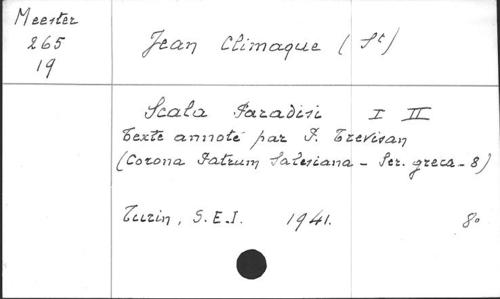 Meester
265
19
Jean Climaque (St)
Scala Paradisi I II
Texte annoté par P. Trevisan
(Corona Patrum Salesiana - Ser. greca - 8)
Turin, S.E.I. 1941. 8°